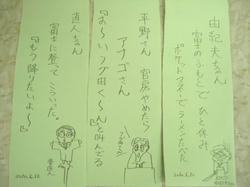 由紀夫さん
富士のふもとで ひと休み
ポケットマネーで ラーメンたべた
平野さん 官房やめたら
アナゴさん
『お〜いフグ田く〜ん』と叫んでる
直人さん
富士に登って こういった。
『もう降りたいよ〜』